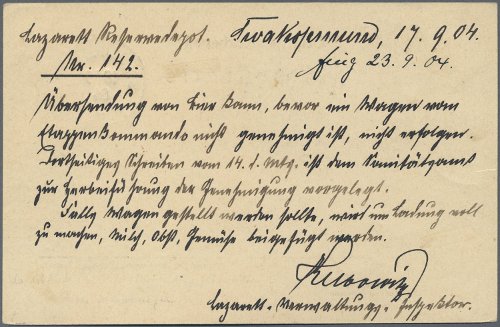 Lazarett Reservedepot. Swakopmund, 17. 9. 04.
Nr. 142. fing 23. 9. 04.
Übersendung von Bier kann, bevor ein Wagen vom
Etappenkommando nicht genehmigt ist, nicht erfolgen.
Dortseitiges Schreiben vom 14. d. Mtz. ist dem Sanitätsamt
zur Herbeiführung der Genehmigung vorgelegt.
Falls Wagen gestellt werden sollte, wird um Ladung voll
zu machen, Milch, Obst, Gemüse beigefügt werden.
Lazarett-Verwaltungs-Inspektor.